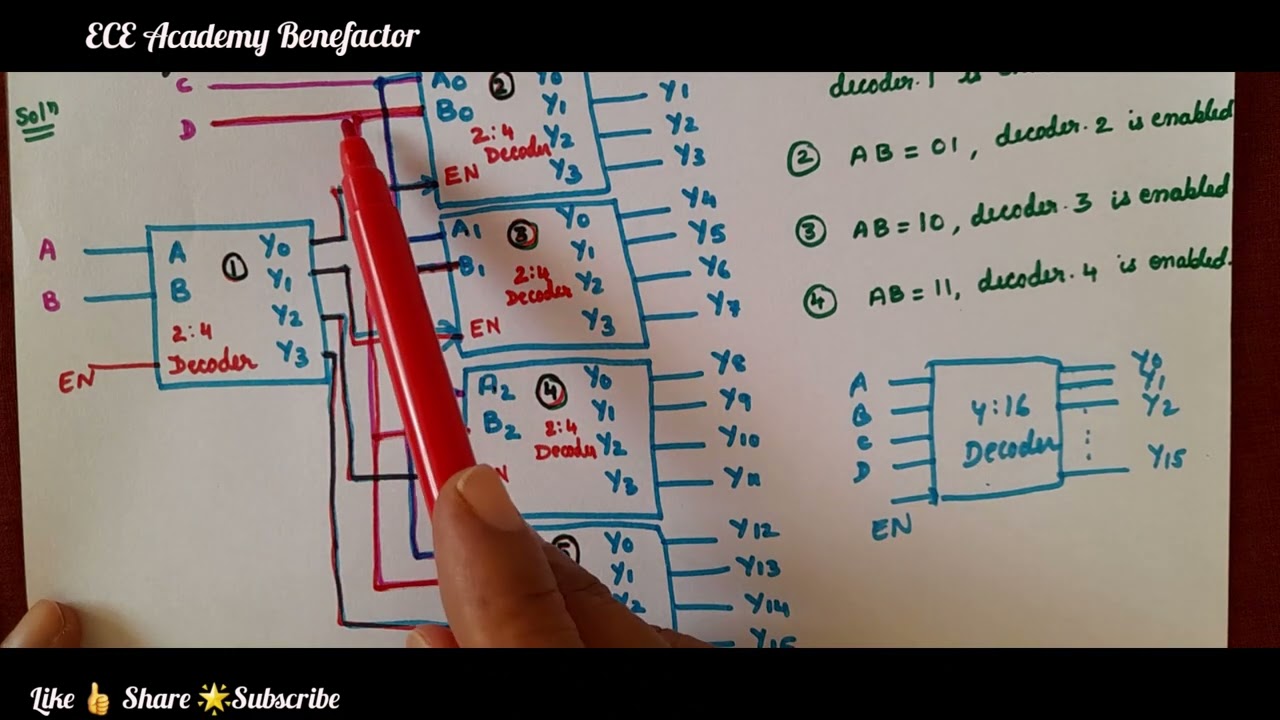 ECE Academy Benefactor
Soln
C
D
A0
B0
EN
2
2:4
Decoder
Y0
Y1
Y2
Y3
Y1
Y2
Y3
A
B
EN
A
B
1
2:4
Decoder
Y0
Y1
Y2
Y3
A1
B1
EN
3
2:4
Decoder
Y0
Y1
Y2
Y3
Y4
Y5
Y6
Y7
A2
B2
4
2:4
Decoder
Y0
Y1
Y2
Y3
Y8
Y9
Y10
Y11
5
Y0
Y1
Y2
Y12
Y13
Y14
Y15
decoder.1 is
2 AB = 01, decoder.2 is enabled
3 AB = 10, decoder.3 is enabled
4 AB = 11, decoder.4 is enabled.
A
B
C
D
EN
4:16
Decoder
Y0
Y1
Y2
Y15
Like 👍 Share 🌟Subscribe